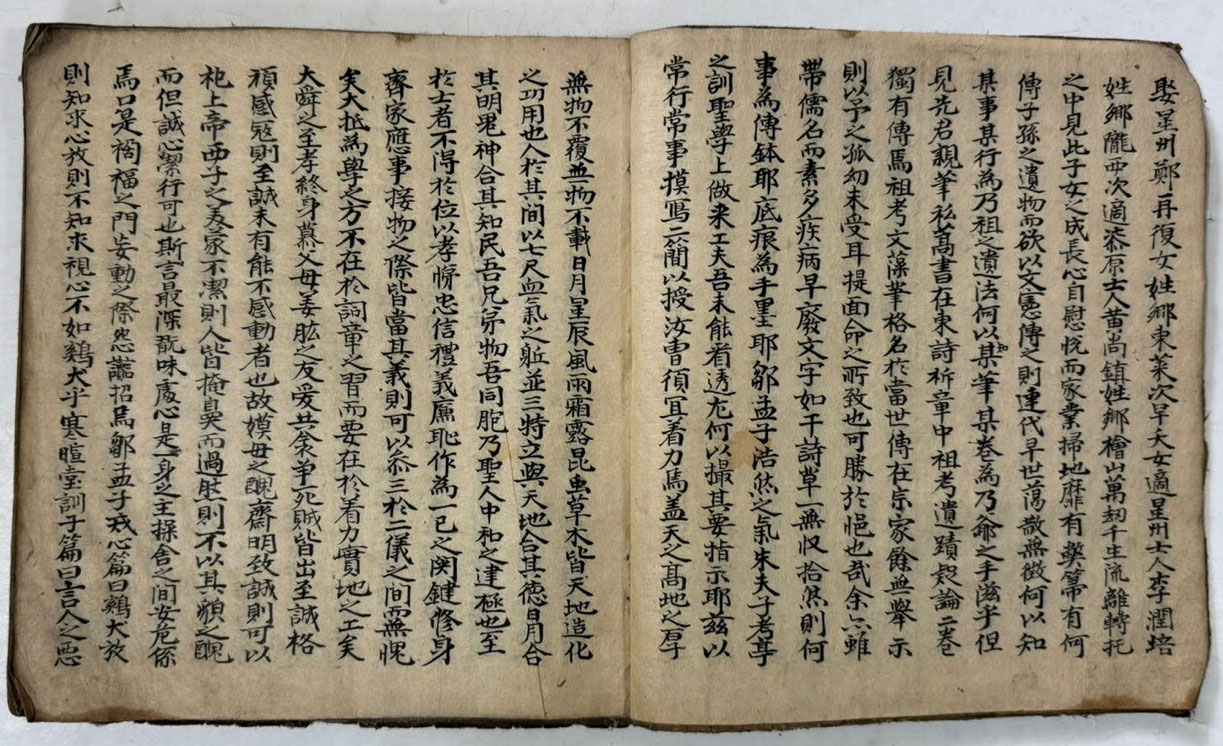 娶星州鄭再復女姓鄉東萊次早夭女適星州士人李潤培
姓鄉隴西次適漆原士人黃尚鎮姓鄉檜山萬刼千生流離轉托
之中見此子女之成長心自慰悅而家業掃地靡有獘箒有何
傳子孫之遺物而欲以文憲傳之則連代早世蕩散無徵何以知
其事某行為乃祖之遺法何以某筆某卷為乃爺之手滋乎但
見先君親筆私藁書在東詩祈章中祖考遺蹟疑論二卷
獨有傳焉祖考文藻筆格名於當世傳在宗家餘無舉示
則以予之孤幼未受耳提面命之所致也可勝於悒也哉余亦雖
帶儒名而素多疾病早廢文字如干詩草一無収拾然則何
事為傳鉢耶底痕為手墨耶鄒孟子浩然之氣朱夫子考亭
之訓聖學上做来工夫吾未能看透尤何以撮其要指示耶玆以
常行常事摸寫二簡以授汝曹須冝着力焉盖天之高地之厚
無物不覆無物不載日月星辰風雨霜露昆虫草木皆天地造化
之功用也人於其間以七尺血氣之躯並三特立與天地合其德日月合
其明鬼神合其知民吾兄弟物吾同胞乃聖人中和之建極也至
於士者不得於位以孝悌忠信禮義廉恥作為一己之関鍵修身
齊家應事接物之際皆當其義則可以叅三於二儀之間而無愧
矣大抵為學之方不在於詞章之習而要在於着力實地之工矣
大舜之至孝終身慕父母姜肱之友爱共衾争死賊皆出至誠格
頑感寇則至誠未有能不感動者也故嫫母之醜齋明致誠則可以
祀上帝西子之美蒙不潔則人皆掩鼻而過然則不以其貌之醜
而但誠心潔行可也斯言最深翫味處心是一身之主操舍之間安危係
焉口是禍福之門妄動之際怨讟招焉鄒孟子戒心篇曰鷄犬放
則知求心放則不知求視心不如鷄犬乎寒暄堂訓子篇曰言人之惡